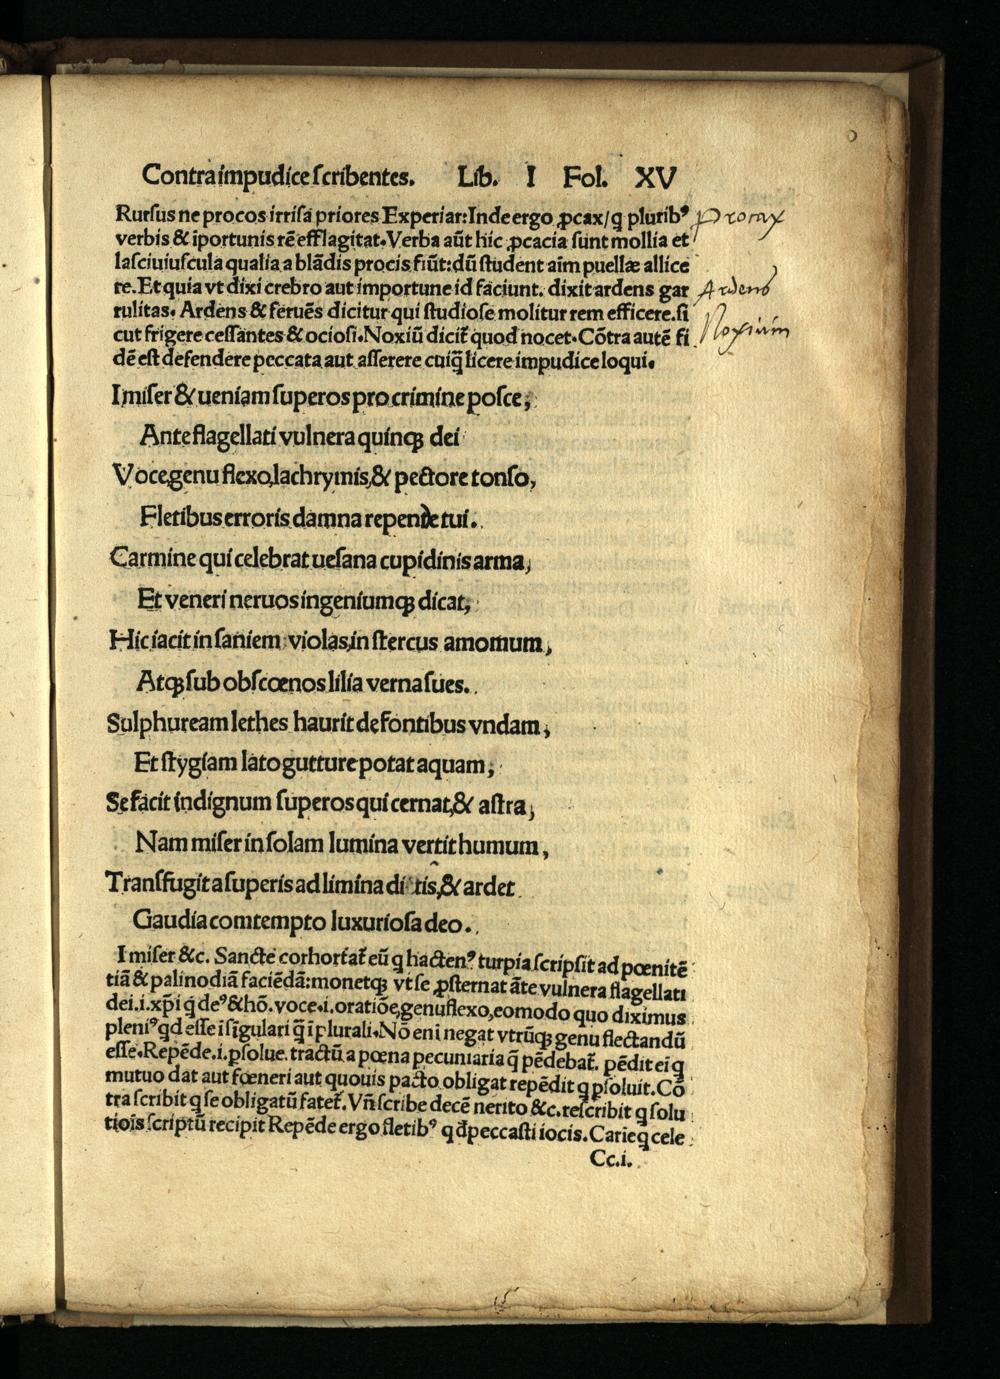 Contra impudice scribentes. Lib. I Fol. XV
Rursus ne procos irrisa priores Experiar: Inde ergo ꝓcax/ q̨ plurib⁹
Procax
verbis & īportunis rē efflagitat. Verba aūt hic ꝓcacia sunt mollia et
lasciuiuscula qualia a blādis procis fiūt: dū student aīm puellæ allice
re. Et quia vt dixi crebro aut importune id faciunt. dixit ardens gar
Ardens
rulitas. Ardens & feruēs dicitur qui studiose molitur rem efficere. si
cut frigere cessantes & ociosi. Noxiū dicit̃ quod nocet. Cōtra autē fi
Noxium
dē est defendere peccata aut asserere cuiq̃ licere impudice loqui.
I miser & ueniam superos pro crimine posce,
Ante flagellati vulnera quinqꝫ dei
Voce, genu flexo, lachrymis, & pectore tonso,
Fletibus erroris damna repende tui.
Carmine qui celebrat uesana cupidinis arma,
Et veneri neruos ingeniumqꝫ dicat,
Hic iacit in saniem violas, in stercus amomum,
Atqꝫ sub obscœnos lilia verna sues.
Sulphuream lethes haurit de fontibus vndam,
Et stygiam lato gutture potat aquam,
Se facit indignum superos qui cernat, & astra,
Nam miser in solam lumina vertit humum,
Transfugit a superis ad limina ditis, & ardet
Gaudia comtempto luxuriosa deo.
I miser &c. Sancte corhortat̃ eū q hacten⁹ turpia scripsit ad pœnitē
tiā & palinodiā faciēdā: monetqꝫ vt se ꝓsternat āte vulnera flagellati
dei .i. xp̄i q̇ de⁹ & hō. voce .i. oratiōe, genu flexo, eo modo quo diximus
pleni⁹ qd esse ī sīgulari q̃ ī plurali. Nō eni negat vtrūqꝫ genu flectandū
esse. Repēde .i. ꝑsolue. tractū a pœna pecuniaria q̃ pēdebat̃. pēdit ei q
mutuo dat aut fœneri aut quouis pacto obligat repēdit q ꝑsoluit. Cō
tra scribit q se obligatū fatet̃. Vn̄ scribe decē nerito &c. rescribit q solu
tiois scriptū recipit Repēde ergo fletib⁹ qd̄ peccasti iocis. Carīe q cele
Cc.i.